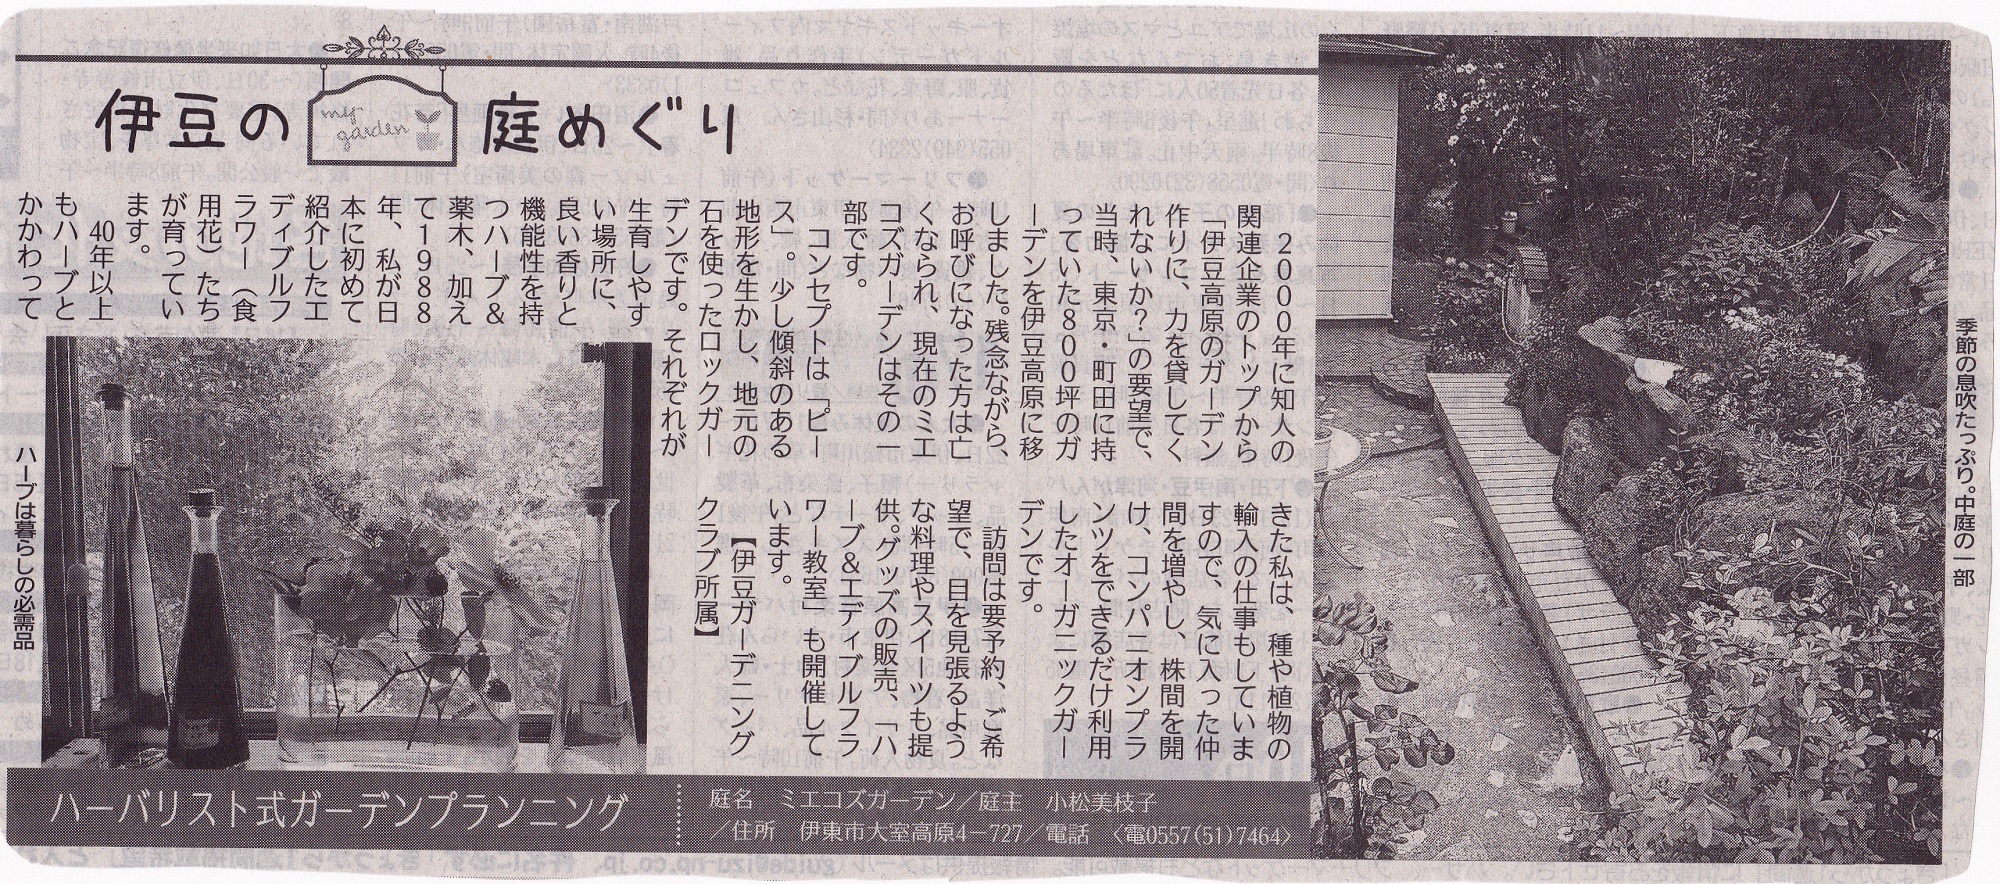 伊豆の
my garden
庭めぐり
2000年に知人の
関連企業のトップから
「伊豆高原のガーデン
作りに、力を貸してく
れないか?」の要望で、
当時、東京・町田に持
っていた800坪のガ
ーデンを伊豆高原に移
しました。残念ながら、
お呼びになった方は亡
くなられ、現在のミエ
コズガーデンはその一
部です。
コンセプトは「ピー
ス」。少し傾斜のある
地形を生かし、地元の
石を使ったロックガー
デンです。それぞれが
生育しやす
い場所に、
良い香りと
機能性を持
つハーブ&
薬木、加え
て1988
年、私が日
本に初めて
紹介したエ
ディブルフ
ラワー(食
用花)たち
が育ってい
ます。
40年以上
もハーブと
かかわって
きた私は、種や植物の
輸入の仕事もしていま
すので、気に入った仲
間を増やし、株間を開
け、コンパニオンプラ
ンツをできるだけ利用
したオーガニックガー
デンです。
訪問は要予約、ご希
望で、目を見張るよう
な料理やスイーツも提
供。グッズの販売、「ハ
ーブ&エディブルフラ
ワー教室」も開催して
います。
【伊豆ガーデニング
クラブ所属】
季節の息吹たっぷり。中庭の一部
ハーブは暮らしの必需品
ハーバリスト式ガーデンプランニング
庭名 ミエコズガーデン/庭主 小松美枝子
/住所 伊東市大室高原4-727/電話 〈電0557(51)7464〉